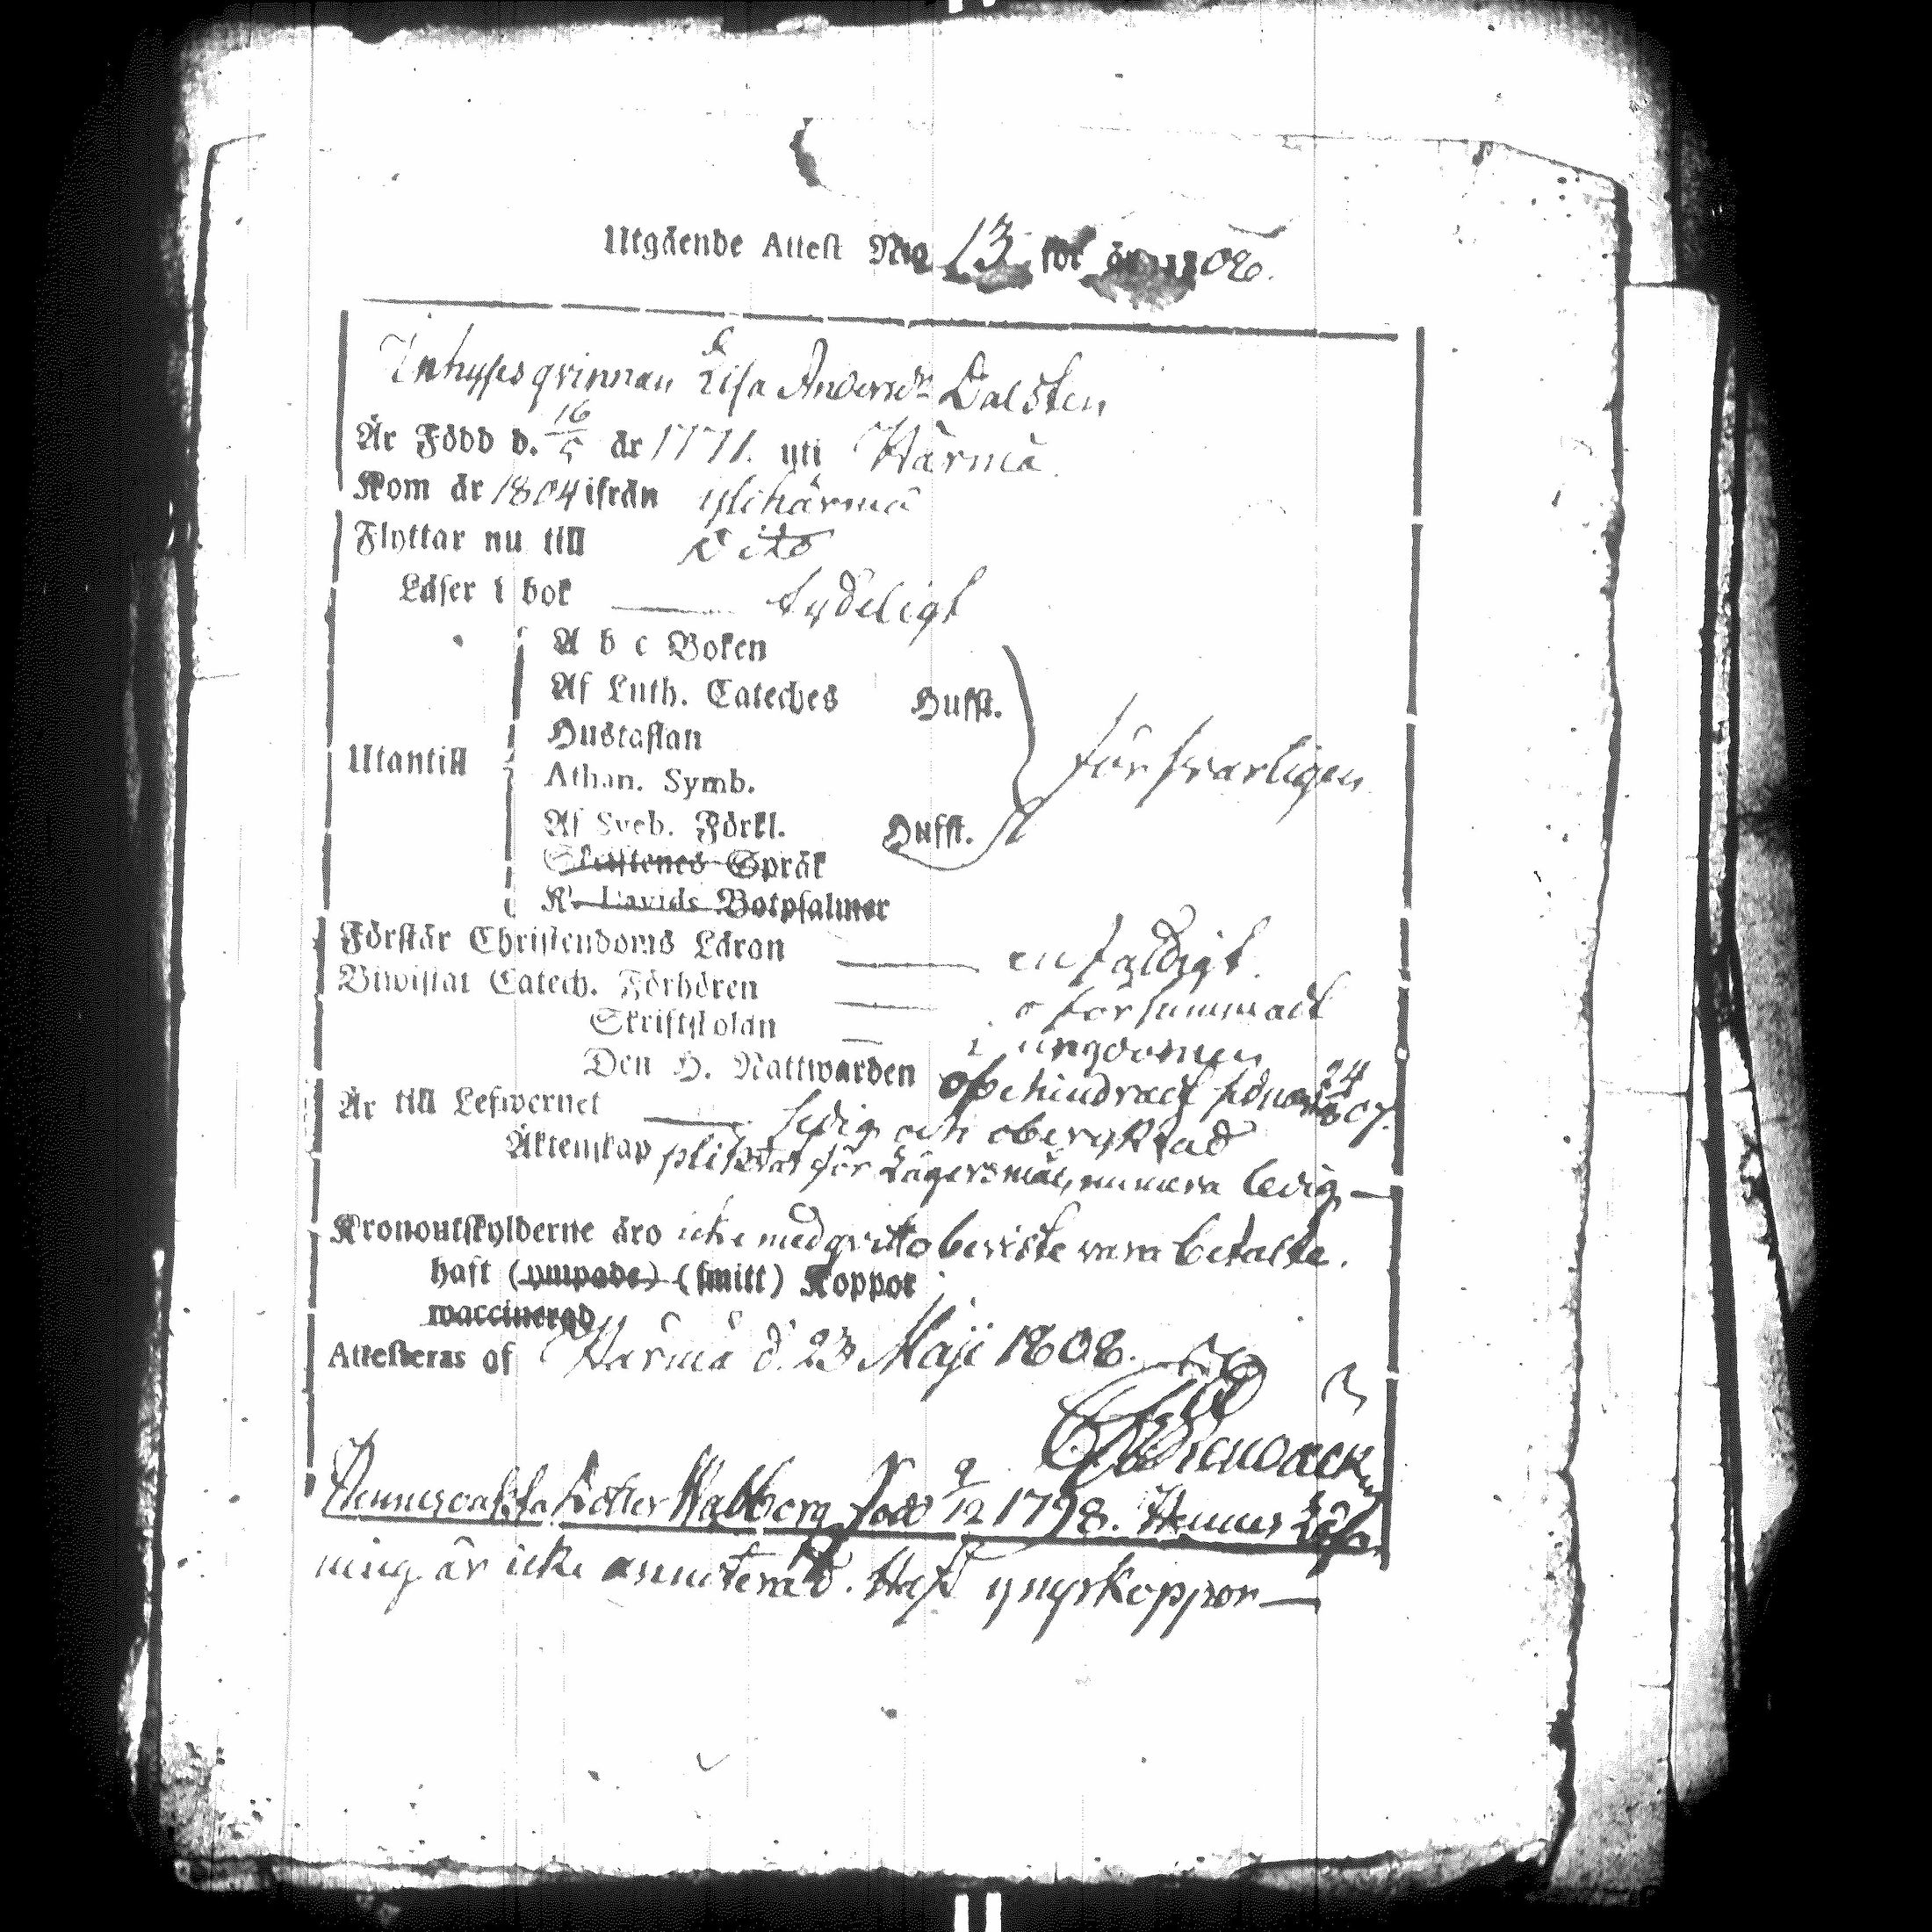 Utgående Attest N:o 13 för år 1808.
Inhyses qvinnan Lisa Andersdr Dalsten
Är Född d. 16/5 år 1771. uti Härmä
Kom år 1804 ifrån ylihärmä
Flyttar nu till dito
Läser i bok — tydeligt
A b c Boken
Af Luth. Cateches Hufst.
Hustaflan
Utantill Athan. Symb. försvarligen
Af Sveb. Förkl. Hufst.
Skriftenes Språk
K. Davids Botpsalmer
Förstår Christendoms Läran — enfaldigt.
Biwistat Catech. Förhören — oförsummadt
Skriftskolan — i ungdomen
Den H. Nattwarden obehindradt 24 1807.
Är till Lefwernet — ledig och oberyktad
Äktenskap pliktat för Lägersmål, numera ledig —
Kronoutskylderne äro icke med qvitto beviste vara betalte.
haft (ympade) (smitt) Koppor
waccinerad
Attesteras af Härmä d. 23 Maji 1808.
Hennes oäkta dotter Walborg född 9/12 1798. Hennes Läs-
ning är icke annoterad. Haft ympkoppor —